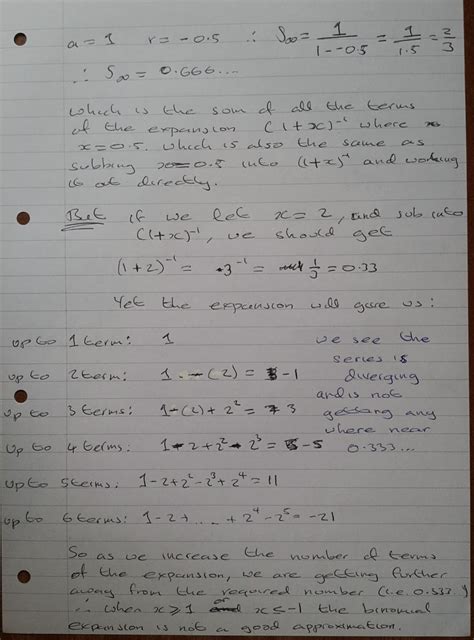 a = 1 r = -0.5 ∴ S∞ = 1/(1--0.5) = 1/1.5 = 2/3
∴ S∞ = 0.666....
which is the sum of all the terms
of the expansion (1+x)⁻¹ where
x=0.5. which is also the same as
subbing x=0.5 into (1+x)⁻¹ and working
it out directly.
But if we let x=2, and sub into
(1+x)⁻¹, we should get
(1+2)⁻¹ = 3⁻¹ = 1/3 = 0.33
Yet the expansion will gave us:
up to 1 term: 1
up to 2 term: 1-(2) = -1
up to 3 terms: 1-(2)+2² = 3
up to 4 terms: 1-2+2²-2³ = -5
we see the
series is
diverging
and is not
getting any
where near
0.333...
up to 5 terms: 1-2+2²-2³+2⁴ = 11
up to 6 terms: 1-2+....+2⁴-2⁵ = -21
So as we increase the number of terms
of the expansion, we are getting further
away from the required number (i.e. 0.333)
∴ when x⩾1 or x≤-1 the binomial
expansion is not a good approximation.